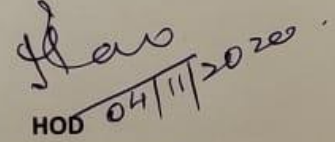 HOD 04/11/2020